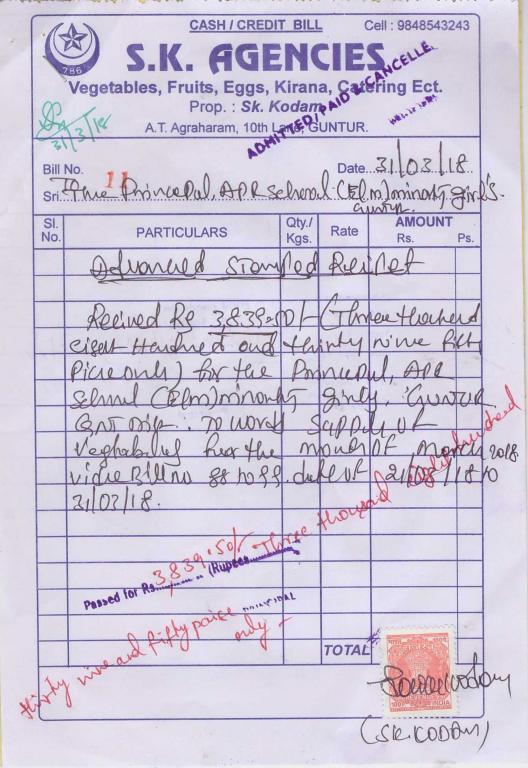 CASH / CREDIT BILL
Cell : 9848543243
786
S.K. AGENCIES
Vegetables, Fruits, Eggs, Kirana, Catering Ect.
Prop. : Sk. Kodam
A.T. Agraharam, 10th Lane, GUNTUR.
ADMITTED/PAID & CANCELLE
31/3/18
Bill No. 11
Date 31/03/18
Sri. The Principal, APR School (E/m) minority girl's
Guntur.
Sl. No.
PARTICULARS
Qty./ Kgs.
Rate
AMOUNT
Rs.
Ps.
Advanced Stamped Reciet
Recived Rs 3,839=50/- (Three thousand
eight Hundred and thirty nine fifty
Picie only) for the Principal, APR
School (E/m) minority girls, GUNTUR
towords Supply of
for the month of March 2018
vide Bill no 88 to 99. date of
31/03/18.
Passed for Rs. 3,839.50/- (Rupees Three thousand eight hundred
thirty nine and fifty paise only -
PRINCIPAL
TOTAL
INDIA
(SK.KODAM)